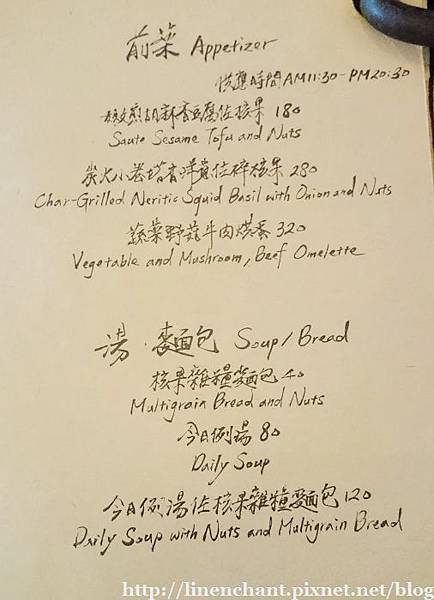 前菜 Appetizer
供應時間AM11:30-PM20:30
煎胡麻香豆腐佐核果 180
Saute Sesame Tofu and Nuts
炭火小卷塔香洋蔥佐碎核果 280
Char-Grilled Neritic Squid Basil with Onion and Nuts
蔬菜野菇牛肉烘蛋 320
Vegetable and Mushroom, Beef Omelette
湯·麵包 Soup/Bread
核果雜糧麵包 40
Multigrain Bread and Nuts
今日例湯 80
Daily Soup
今日例湯佐核果雜糧麵包 120
Daily Soup with Nuts and Multigrain Bread
http://linenchant.pixnet.net/blog